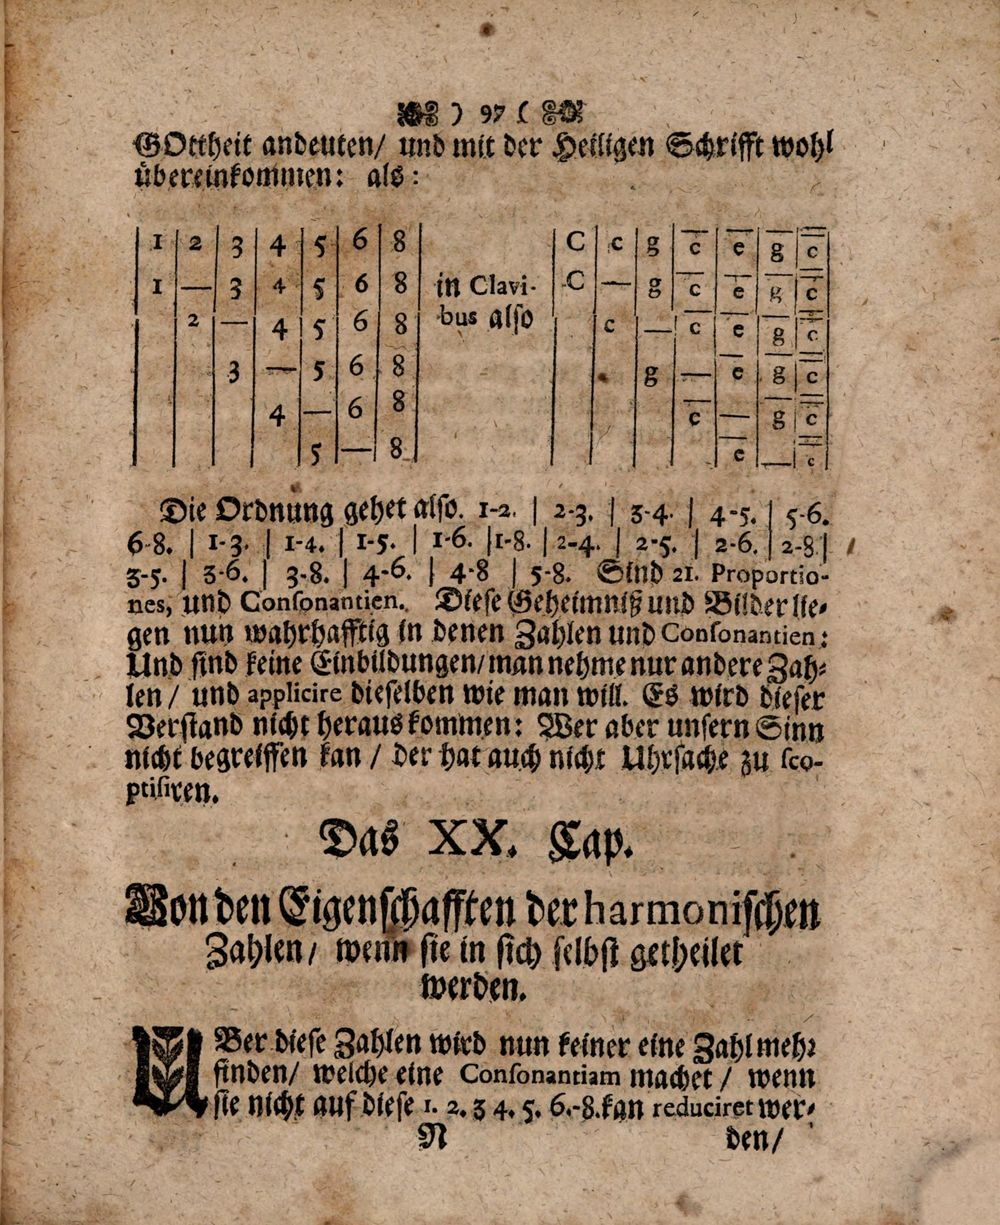 ) 97 (
GOttheit andeuten/ und mit der Heiligen Schrifft wohl
übereinkommen: als:
1 | 2 | 3 | 4 | 5 | 6 | 8 | | C | c | g | c̅ | e̅ | g̅ | c̿
1 | — | 3 | 4 | 5 | 6 | 8 | in Clavi- | C | — | g | c̅ | e̅ | g̅ | c̿
2 | — | 4 | 5 | 6 | 8 | bus also | c | — | c̅ | e̅ | g̅ | c̿
3 | — | 5 | 6 | 8 | | g | — | e̅ | g̅ | c̿
4 | — | 6 | 8 | | c̅ | — | g̅ | c̿
5 | — | 8 | | e̅ | — | c̿
Die Ordnung gehet also. 1-2. | 2-3. | 3-4. | 4-5. | 5-6.
6-8. | 1-3. | 1-4. | 1-5. | 1-6. | 1-8. | 2-4. | 2-5. | 2-6. | 2-8 |
3-5. | 3-6. | 3-8. | 4-6. | 4-8 | 5-8. Sind 21. Proportio-
nes, und Consonantien. Diese Geheimniß und Bilder lie-
gen nun wahrhafftig in denen Zahlen und Consonantien:
Und sind keine Einbildungen/ man nehme nur andere Zah-
len/ und applicire dieselben wie man will. Es wird dieser
Verstand nicht heraus kommen: Wer aber unsern Sinn
nicht begreiffen kan/ der hat auch nicht Uhrsache zu sco-
ptisiren.
Das XX. Cap.
Von den Eigenschafften der harmonischen
Zahlen/ wenn sie in sich selbst getheilet
werden.
UBer diese Zahlen wird nun keiner eine Zahl mehr
finden/ welche eine Consonantiam machet/ wenn
sie nicht auf diese 1. 2. 3 4. 5. 6.-8. kan reduciret wer-
N den/